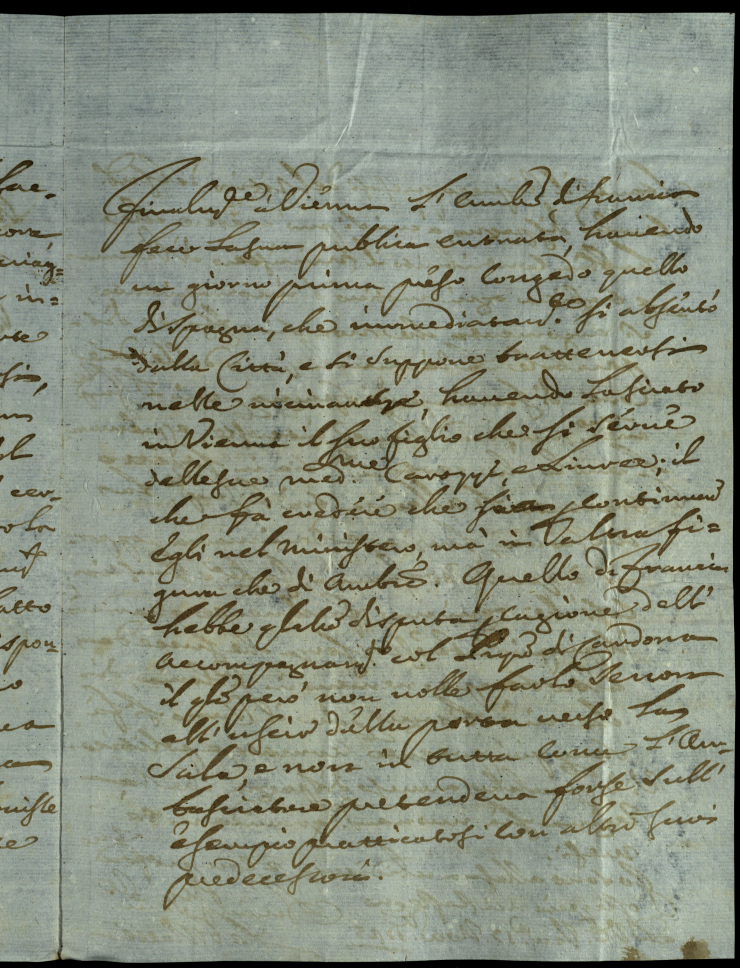 Finalm.e à Vienna l'Amb.r di Francia
fece la sua publica entrata, havendo
un giorno prima preso congedo quello
di Spagna, che immediatam.e si absentò
dalla Città, e si suppone trattenersi
nelle vicinanze, havendo lasciato
in Vienna il suo figlio che si serve
delle sue med.me Carozze, e Livree; il
che fà credere che continuerà
Egli nel ministero, mà in altra fi=
gura che di Amb.re. Quello di Francia
hebbe qualche disputa a cagione dell'
accompagnam.to col Prnpe di Cardona
il qle però non volle farlo senon
all'uscir della porta verso la
Sala, e non in tutta come l'Am=
basciatore pretendeva forse sull'
esempio pratticatosi con altri suoi
predecessori.